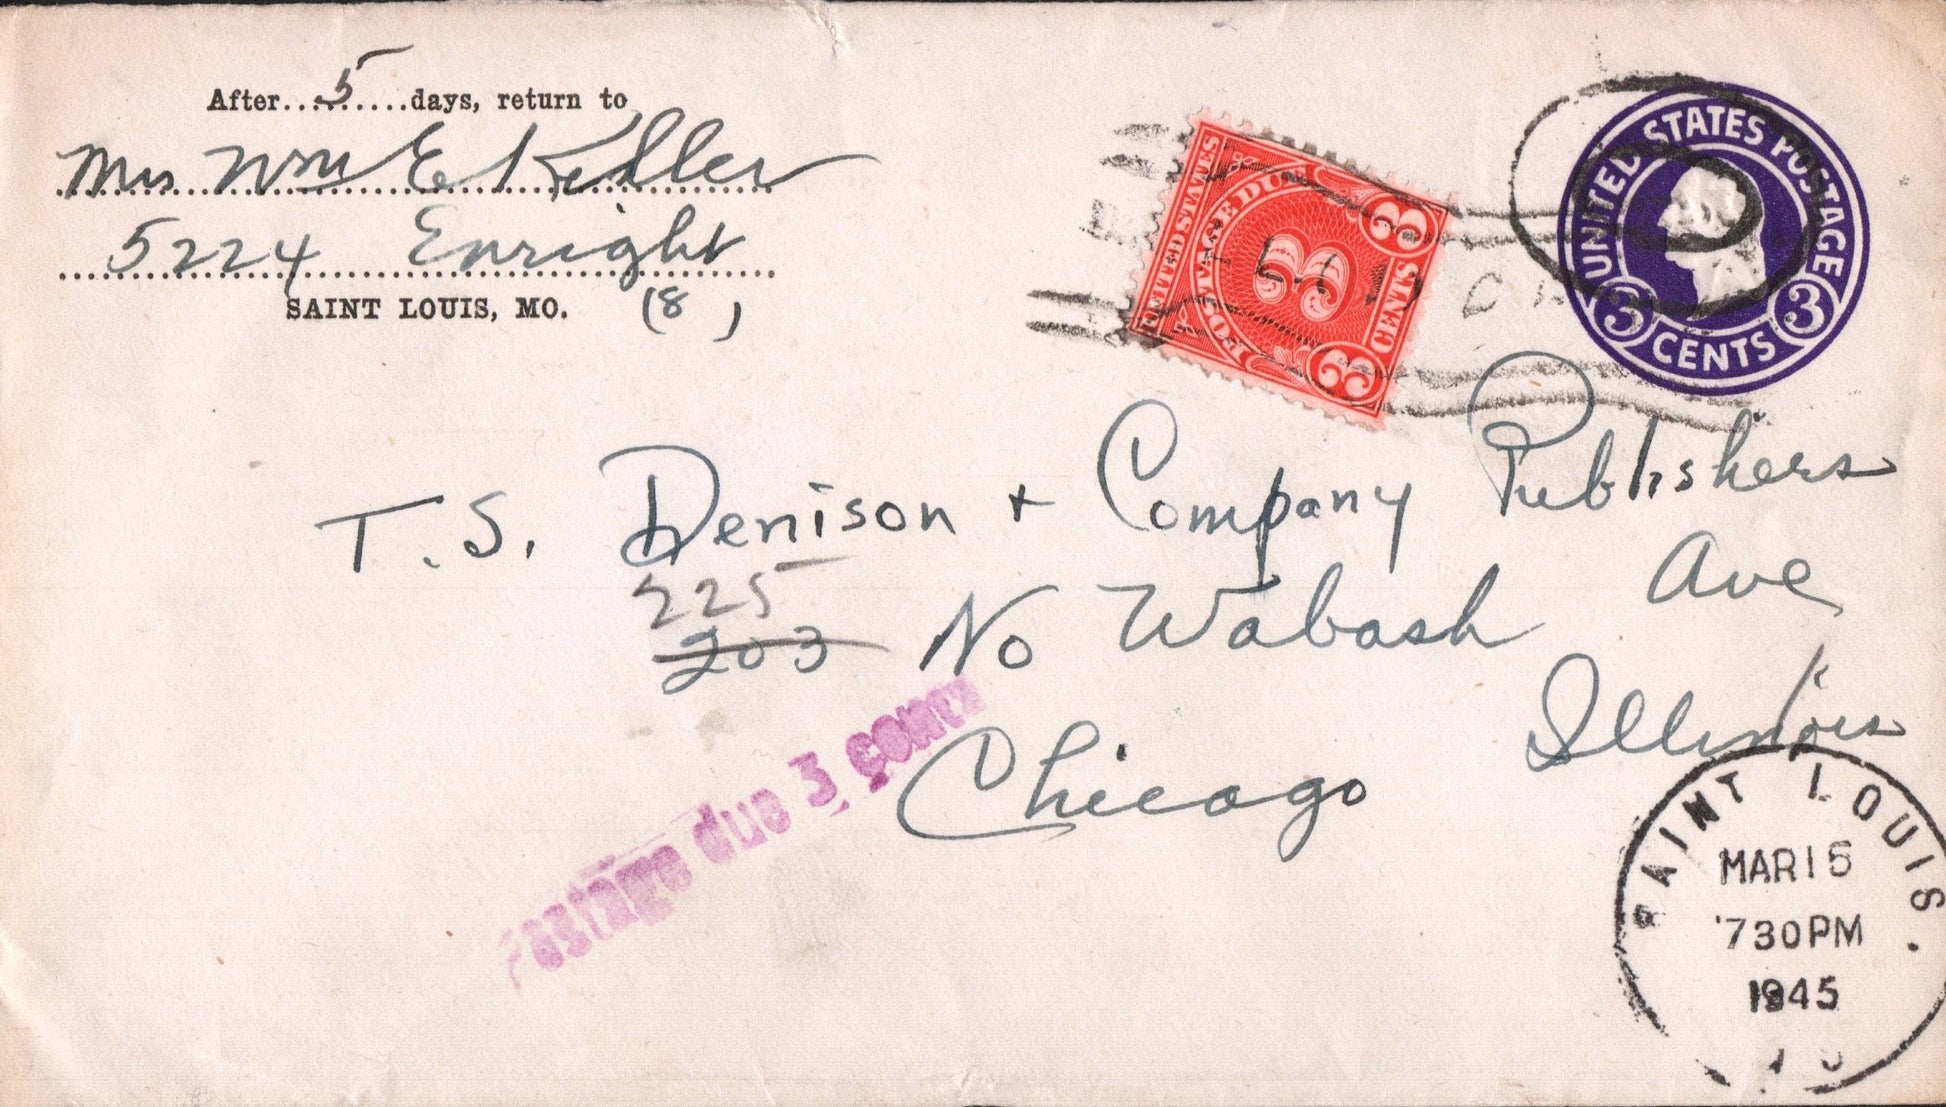 After...5......days, return to
Mrs Wm E Kidler
5224 Enright
SAINT LOUIS, MO. (8)
UNITED STATES POSTAGE
3 CENTS 3
UNITED STATES
POSTAGE DUE
3
3 CENTS 3
T. S. Denison + Company Publishers
225
203 No Wabash Ave
Chicago Illinois
Postage due 3 cents
SAINT LOUIS.
MAR 15
730PM
1945